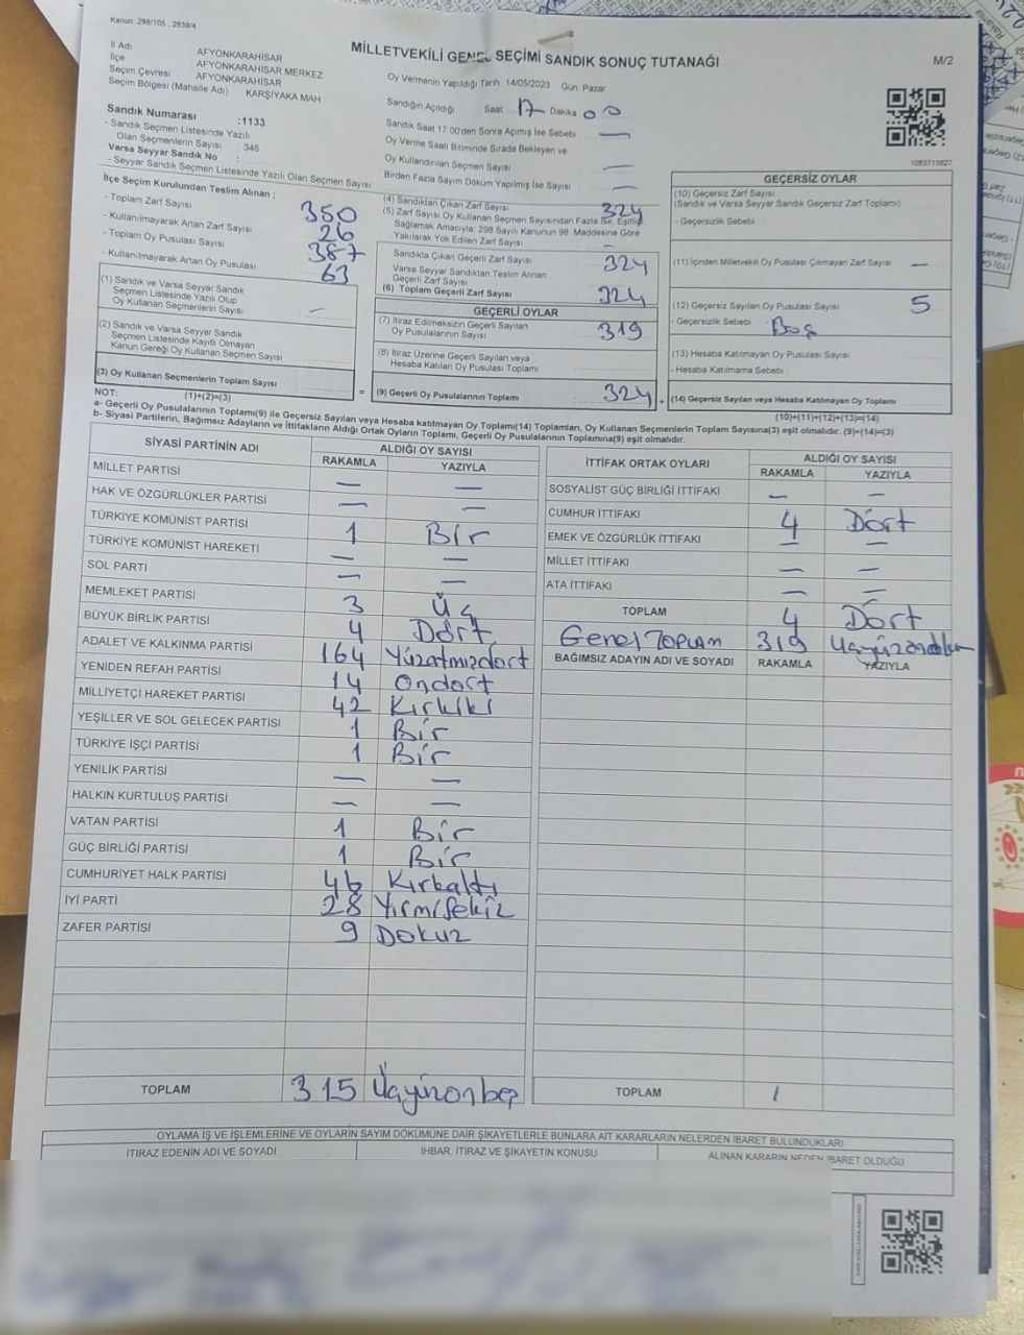 Kanun: 298/105 , 2839/4
MİLLETVEKİLİ GENEL SEÇİMİ SANDIK SONUÇ TUTANAĞI
M/2
İl Adı AFYONKARAHİSAR
İlçe AFYONKARAHİSAR MERKEZ
Seçim Çevresi AFYONKARAHİSAR
Seçim Bölgesi (Mahalle Adı) KARŞIYAKA MAH
Sandık Numarası :1133
- Sandık Seçmen Listesinde Yazılı
Olan Seçmenlerin Sayısı : 346
Varsa Seyyar Sandık No :
- Seyyar Sandık Seçmen Listesinde Yazılı Olan Seçmen Sayısı
Oy Vermenin Yapıldığı Tarih 14/05/2023 Gün Pazar
Sandığın Açıldığı Saat 17 Dakika 00
Sandık Saat 17.00'den Sonra Açılmış İse Sebebi —
Oy Verme Saati Bitiminde Sırada Bekleyen ve
Oy Kullandırılan Seçmen Sayısı —
Birden Fazla Sayım Döküm Yapılmış İse Sayısı —
İlçe Seçim Kurulundan Teslim Alınan :
- Toplam Zarf Sayısı 350
- Kullanılmayarak Artan Zarf Sayısı 26
- Toplam Oy Pusulası Sayısı 387
- Kullanılmayarak Artan Oy Pusulası 63
(1) Sandık ve Varsa Seyyar Sandık
Seçmen Listesinde Yazılı Olup
Oy Kullanan Seçmenlerin Sayısı —
(2) Sandık ve Varsa Seyyar Sandık
Seçmen Listesinde Kayıtlı Olmayan
Kanun Gereği Oy Kullanan Seçmen Sayısı
(3) Oy Kullanan Seçmenlerin Toplam Sayısı
(1)+(2)=(3)
(4) Sandıktan Çıkan Zarf Sayısı 324
(5) Zarf Sayısı Oy Kullanan Seçmen Sayısından Fazla İse, Eşitliği
Sağlamak Amacıyla, 298 Sayılı Kanunun 98. Maddesine Göre
Yakılarak Yok Edilen Zarf Sayısı —
Sandıkta Çıkan Geçerli Zarf Sayısı 324
Varsa Seyyar Sandıktan Teslim Alınan
Geçerli Zarf Sayısı
(6) Toplam Geçerli Zarf Sayısı 324
GEÇERLİ OYLAR
(7) İtiraz Edilmeksizin Geçerli Sayılan
Oy Pusulalarının Sayısı 319
(8) İtiraz Üzerine Geçerli Sayılan veya
Hesaba Katılan Oy Pusulası Toplamı
(9) Geçerli Oy Pusulalarının Toplamı 324
GEÇERSİZ OYLAR
(10) Geçersiz Zarf Sayısı
(Sandık ve Varsa Seyyar Sandık Geçersiz Zarf Toplamı)
- Geçersizlik Sebebi
(11) İçinden Milletvekili Oy Pusulası Çıkmayan Zarf Sayısı —
(12) Geçersiz Sayılan Oy Pusulası Sayısı 5
- Geçersizlik Sebebi Boş
(13) Hesaba Katılmayan Oy Pusulası Sayısı
- Hesaba Katılmama Sebebi
(14) Geçersiz Sayılan veya Hesaba Katılmayan Oy Toplamı
(10)+(11)+(12)+(13)=(14)
NOT:
a- Geçerli Oy Pusulalarının Toplamı(9) ile Geçersiz Sayılan veya Hesaba Katılmayan Oy Toplamı(14) Toplamları, Oy Kullanan Seçmenlerin Toplam Sayısına(3) eşit olmalıdır. (9)+(14)=(3)
b- Siyasi Partilerin, Bağımsız Adayların ve İttifakların Aldığı Ortak Oyların Toplamı, Geçerli Oy Pusulalarının Toplamına(9) eşit olmalıdır.
SİYASİ PARTİNİN ADI ALDIĞI OY SAYISI
RAKAMLA YAZIYLA
MİLLET PARTİSİ — —
HAK VE ÖZGÜRLÜKLER PARTİSİ — —
TÜRKİYE KOMÜNİST PARTİSİ 1 Bir
TÜRKİYE KOMÜNİST HAREKETİ — —
SOL PARTİ — —
MEMLEKET PARTİSİ 3 Üç
BÜYÜK BİRLİK PARTİSİ 4 Dört
ADALET VE KALKINMA PARTİSİ 164 Yüzatmışdört
YENİDEN REFAH PARTİSİ 14 Ondört
MİLLİYETÇİ HAREKET PARTİSİ 42 Kırkiki
YEŞİLLER VE SOL GELECEK PARTİSİ 1 Bir
TÜRKİYE İŞÇİ PARTİSİ 1 Bir
YENİLİK PARTİSİ — —
HALKIN KURTULUŞ PARTİSİ — —
VATAN PARTİSİ 1 Bir
GÜÇ BİRLİĞİ PARTİSİ 1 Bir
CUMHURİYET HALK PARTİSİ 46 Kırkaltı
İYİ PARTİ 28 Yirmisekiz
ZAFER PARTİSİ 9 Dokuz
TOPLAM 315 Üçyüzonbeş
İTTİFAK ORTAK OYLARI ALDIĞI OY SAYISI
RAKAMLA YAZIYLA
SOSYALİST GÜÇ BİRLİĞİ İTTİFAKI — —
CUMHUR İTTİFAKI 4 Dört
EMEK VE ÖZGÜRLÜK İTTİFAKI — —
MİLLET İTTİFAKI — —
ATA İTTİFAKI — —
TOPLAM 4 Dört
Genel Toplam 319
BAĞIMSIZ ADAYIN ADI VE SOYADI RAKAMLA YAZIYLA
TOPLAM /
OYLAMA İŞ VE İŞLEMLERİNE VE OYLARIN SAYIM DÖKÜMÜNE DAİR ŞİKAYETLERLE BUNLARA AİT KARARLARIN NELERDEN İBARET BULUNDUKLARI
İTİRAZ EDENİN ADI VE SOYADI İHBAR, İTİRAZ VE ŞİKAYETİN KONUSU ALINAN KARARIN NEDEN İBARET OLDUĞU